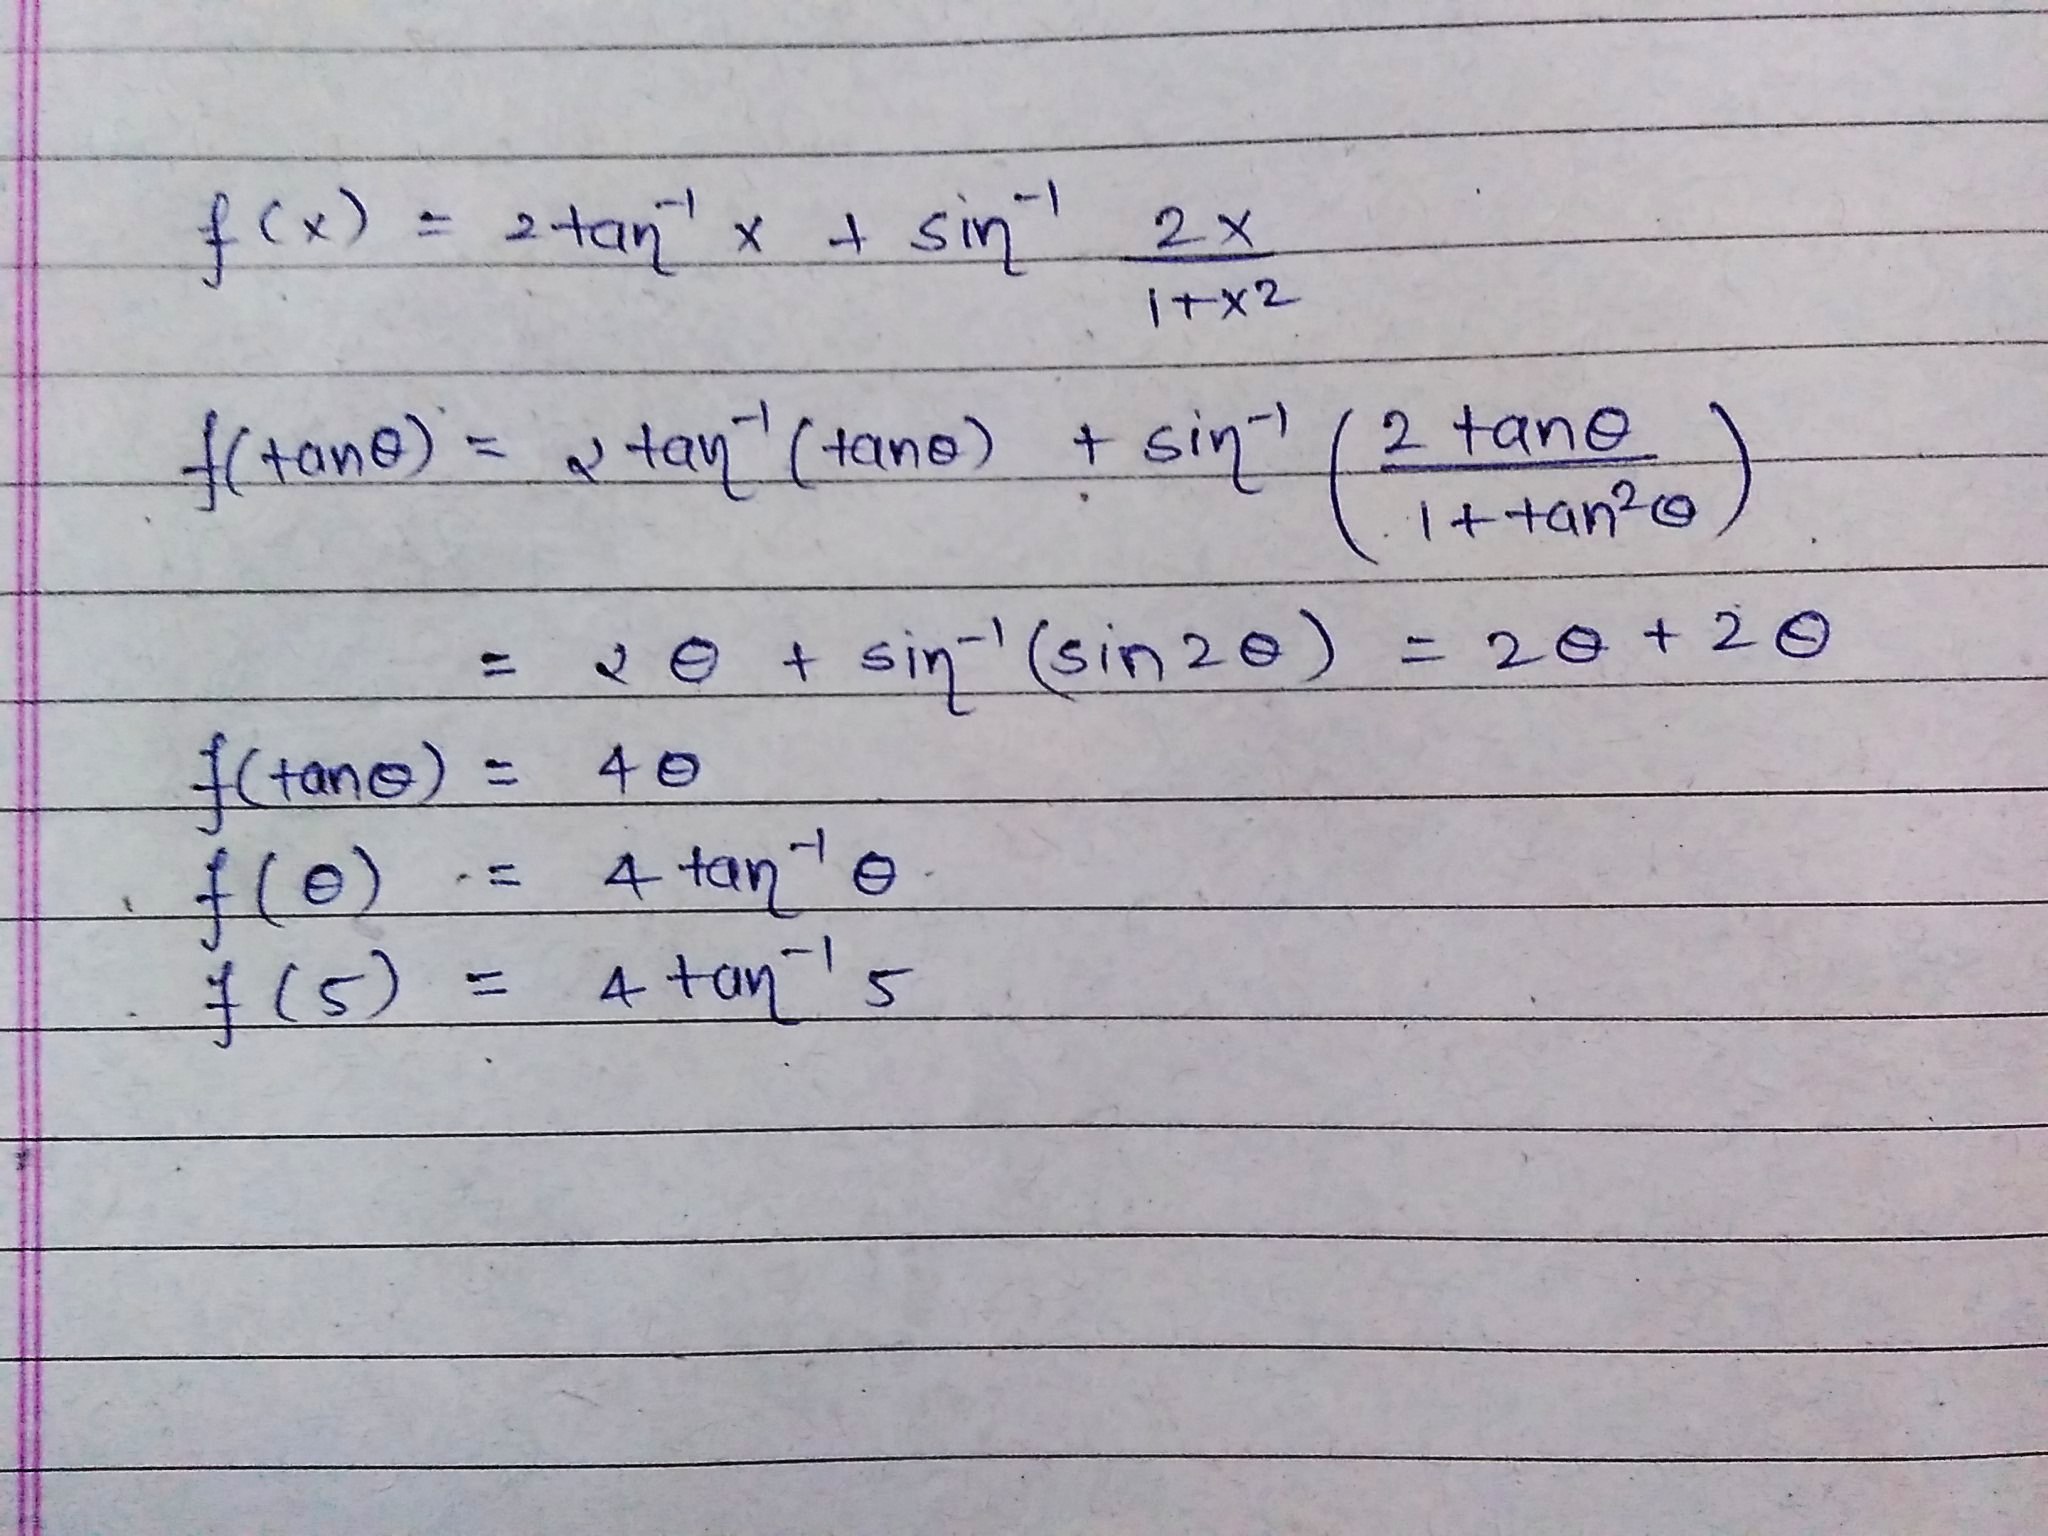 f(x) = 2tan⁻¹ x + sin⁻¹ 2x/1+x2
f(tanθ) = 2 tan⁻¹(tanθ) + sin⁻¹ (2 tanθ/1+tan²θ)
= 2θ + sin⁻¹(sin2θ) = 2θ + 2θ
f(tanθ) = 4θ
f(θ) = 4 tan⁻¹ θ
f(5) = 4 tan⁻¹ 5